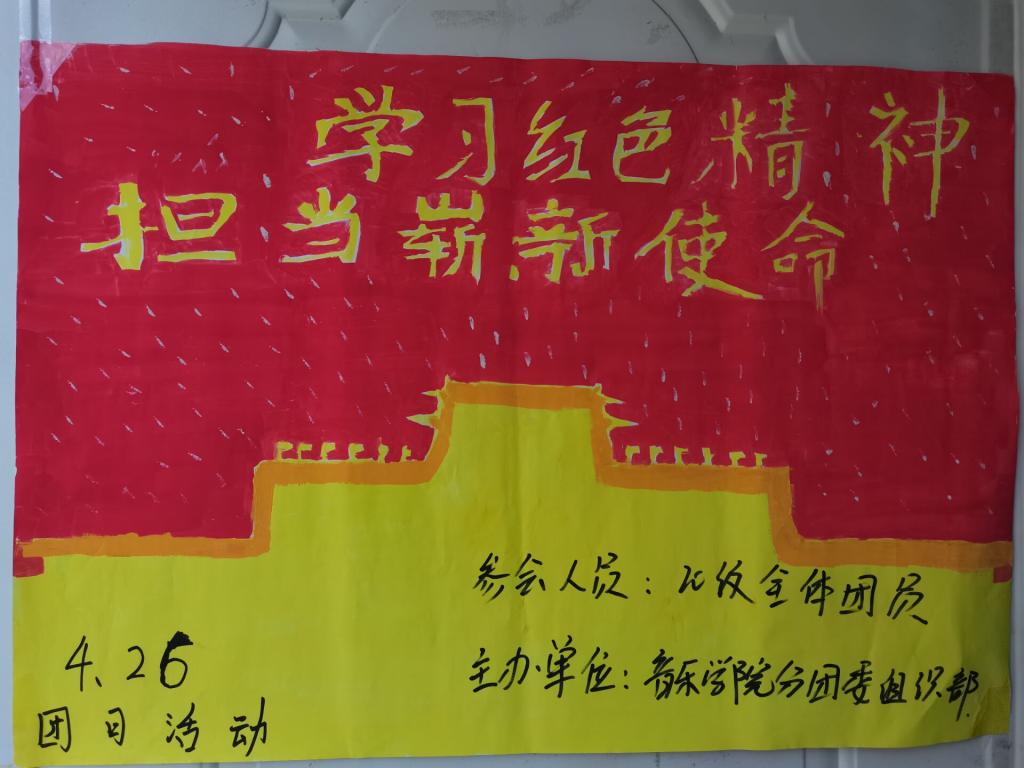 学习红色精神
担当崭新使命
参会人员：20级全体团员
主办单位：音乐学院分团委组织部
4.26
团日活动